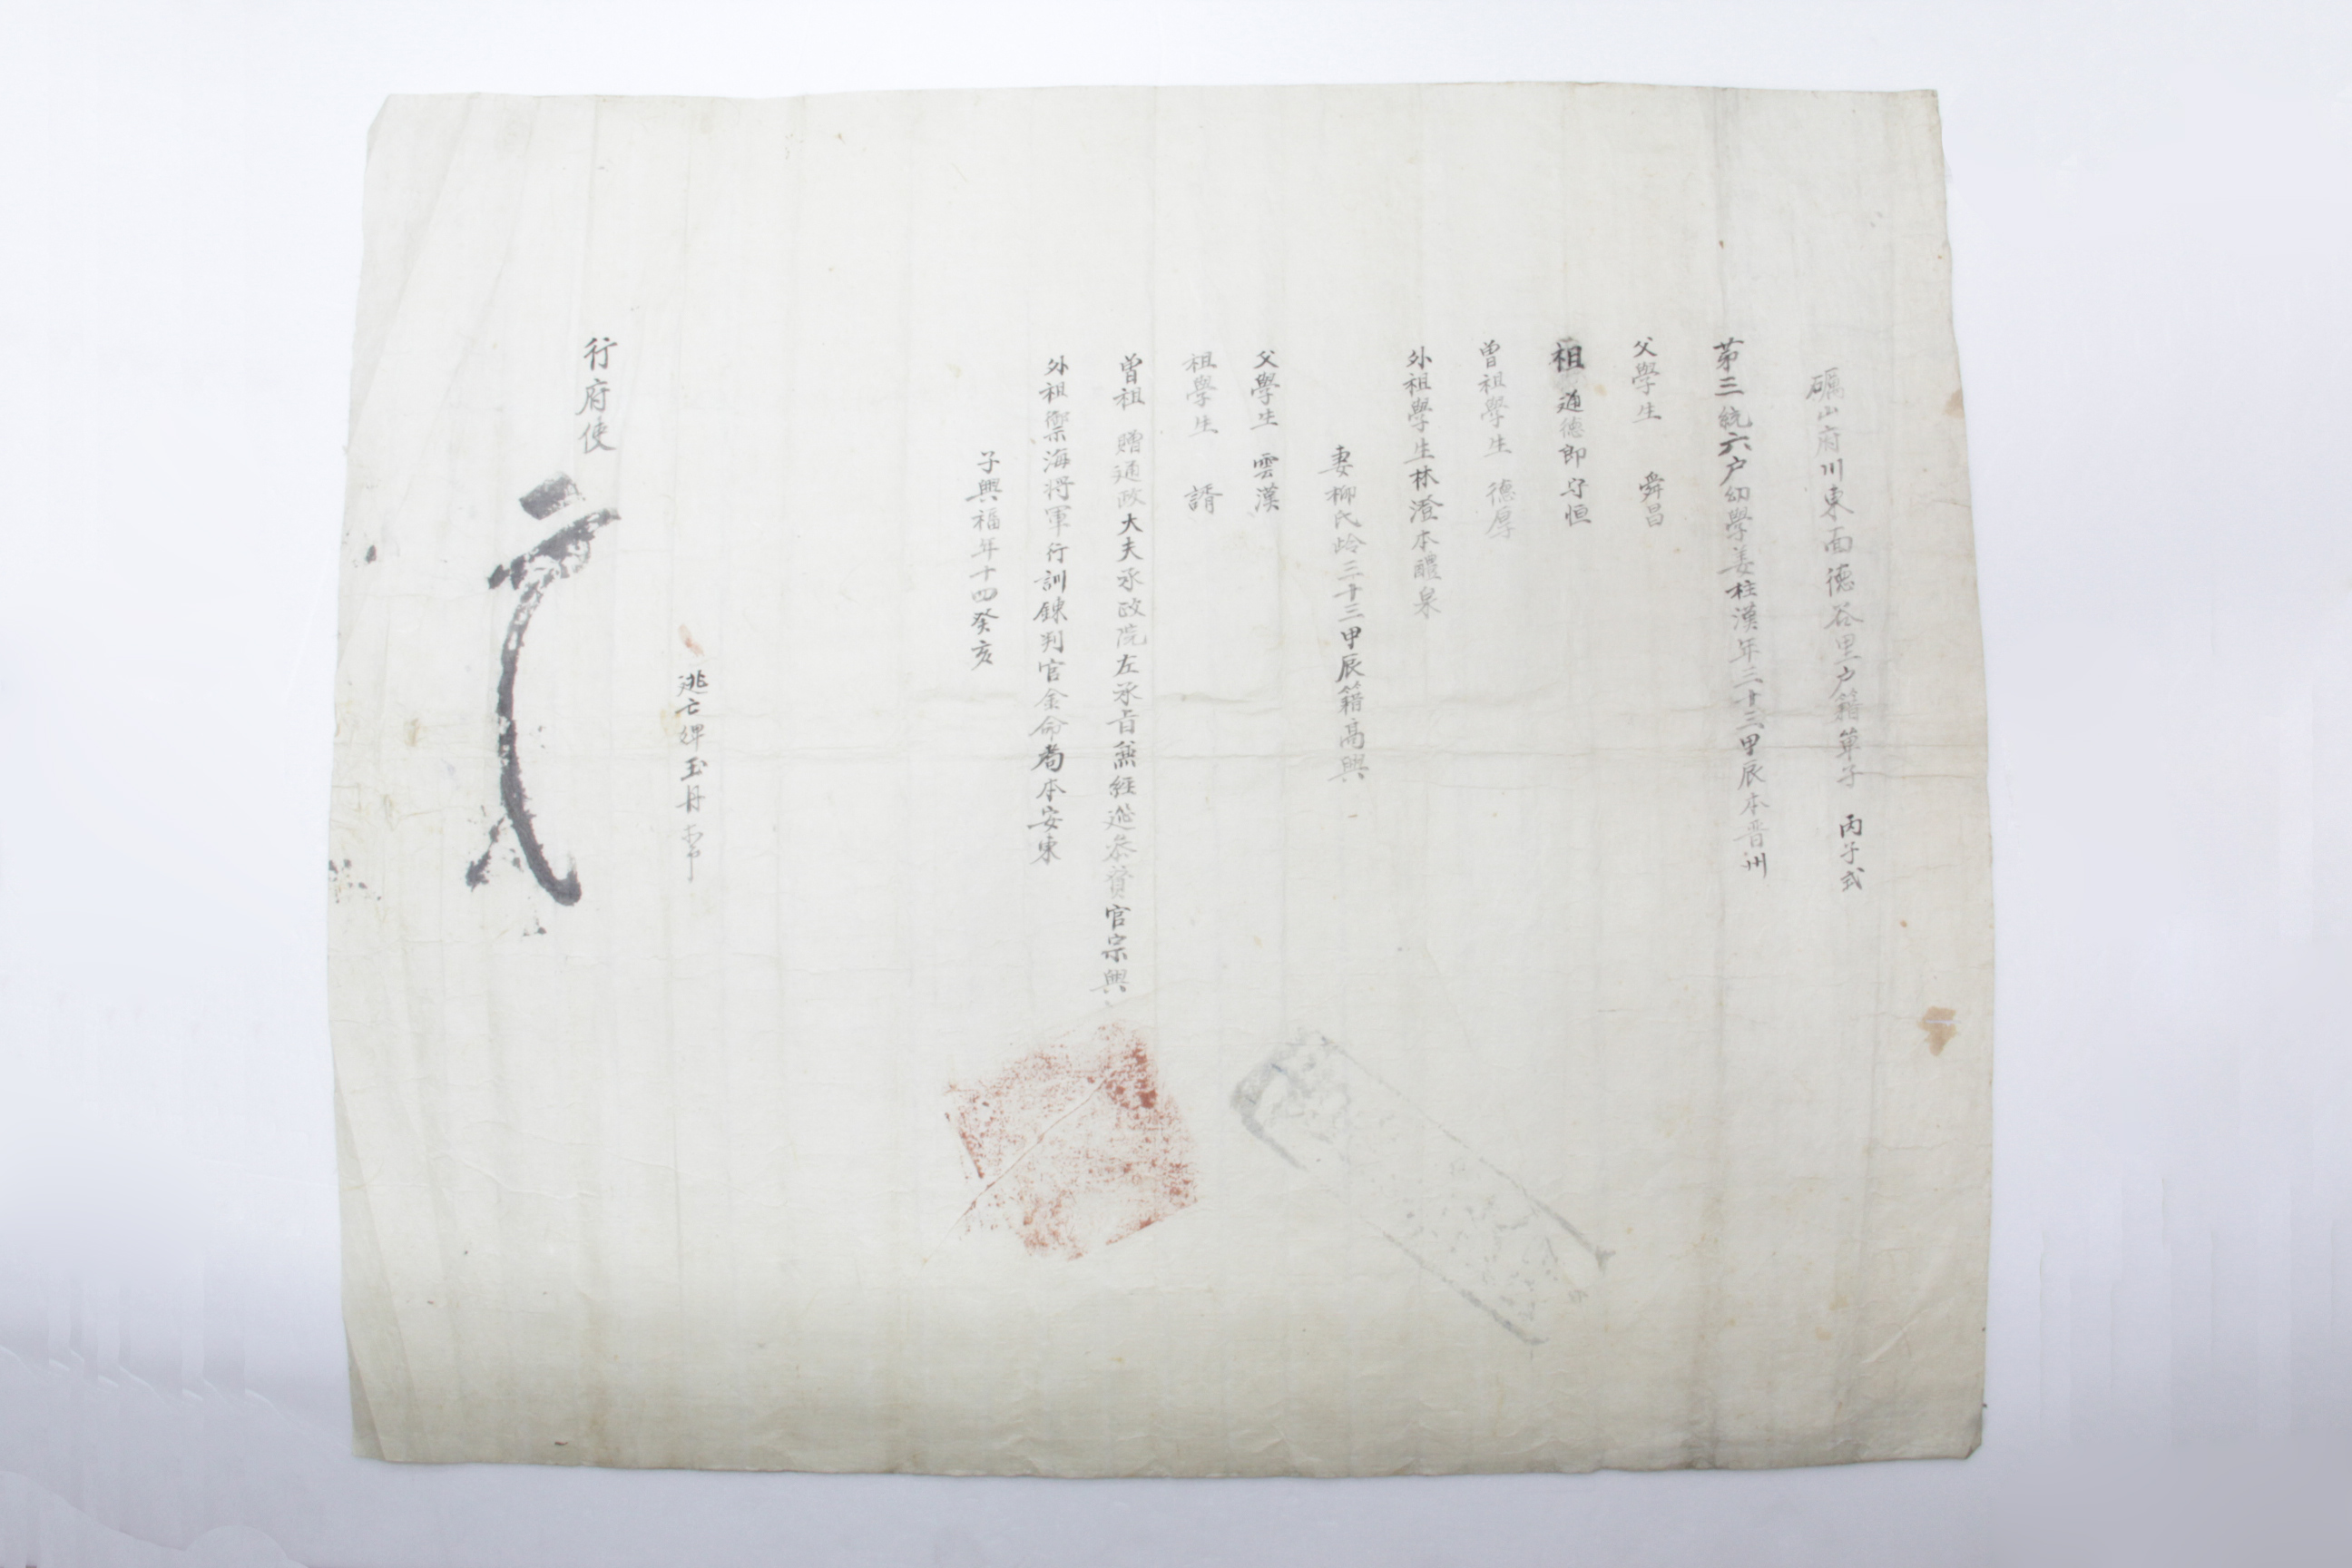 礪山府川東面德谷里户籍單子 丙子式
苐三統六户幼學姜柱漢年三十三甲辰本晋州
父學生 舜昌
祖通德郎守恒
曽祖學生 德厚
外祖學生林澄本醴泉
妻柳氏齡三十三甲辰籍高興
父學生 雲漢
祖學生 諝
曽祖 贈通政大夫承政院左承旨兼經筵叅贊官宗興
外祖禦海將軍行訓鍊判官金命卨本安東
子興福年十四癸亥
逃亡婢玉丹
行府使